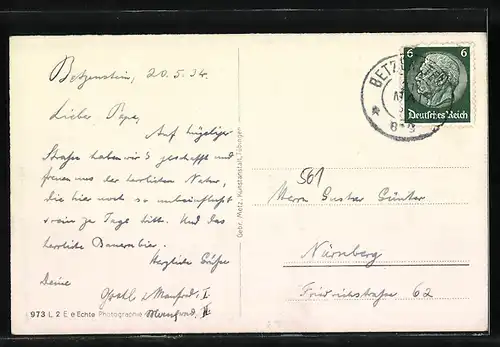 Betzenstein, 20.5.34.
Lieber Pepe,
Auf hügeliger
Straße haben wir's geschafft und
freuen uns der herrlichen Natur,
die hier noch so unbeeinflußt
rein zu Tage tritt. Und das
herrliche Bauernbier.
Herzliche Grüße
Deine
Manfred I
Manfred II
973 L 2 E e Echte Photographie
Gebr. Metz, Kunstanstalt, Tübingen
BETZENSTEIN
6 6
Deutsches Reich
561
Herrn Gustav Günter
Nürnberg
Friedrichstraße 62